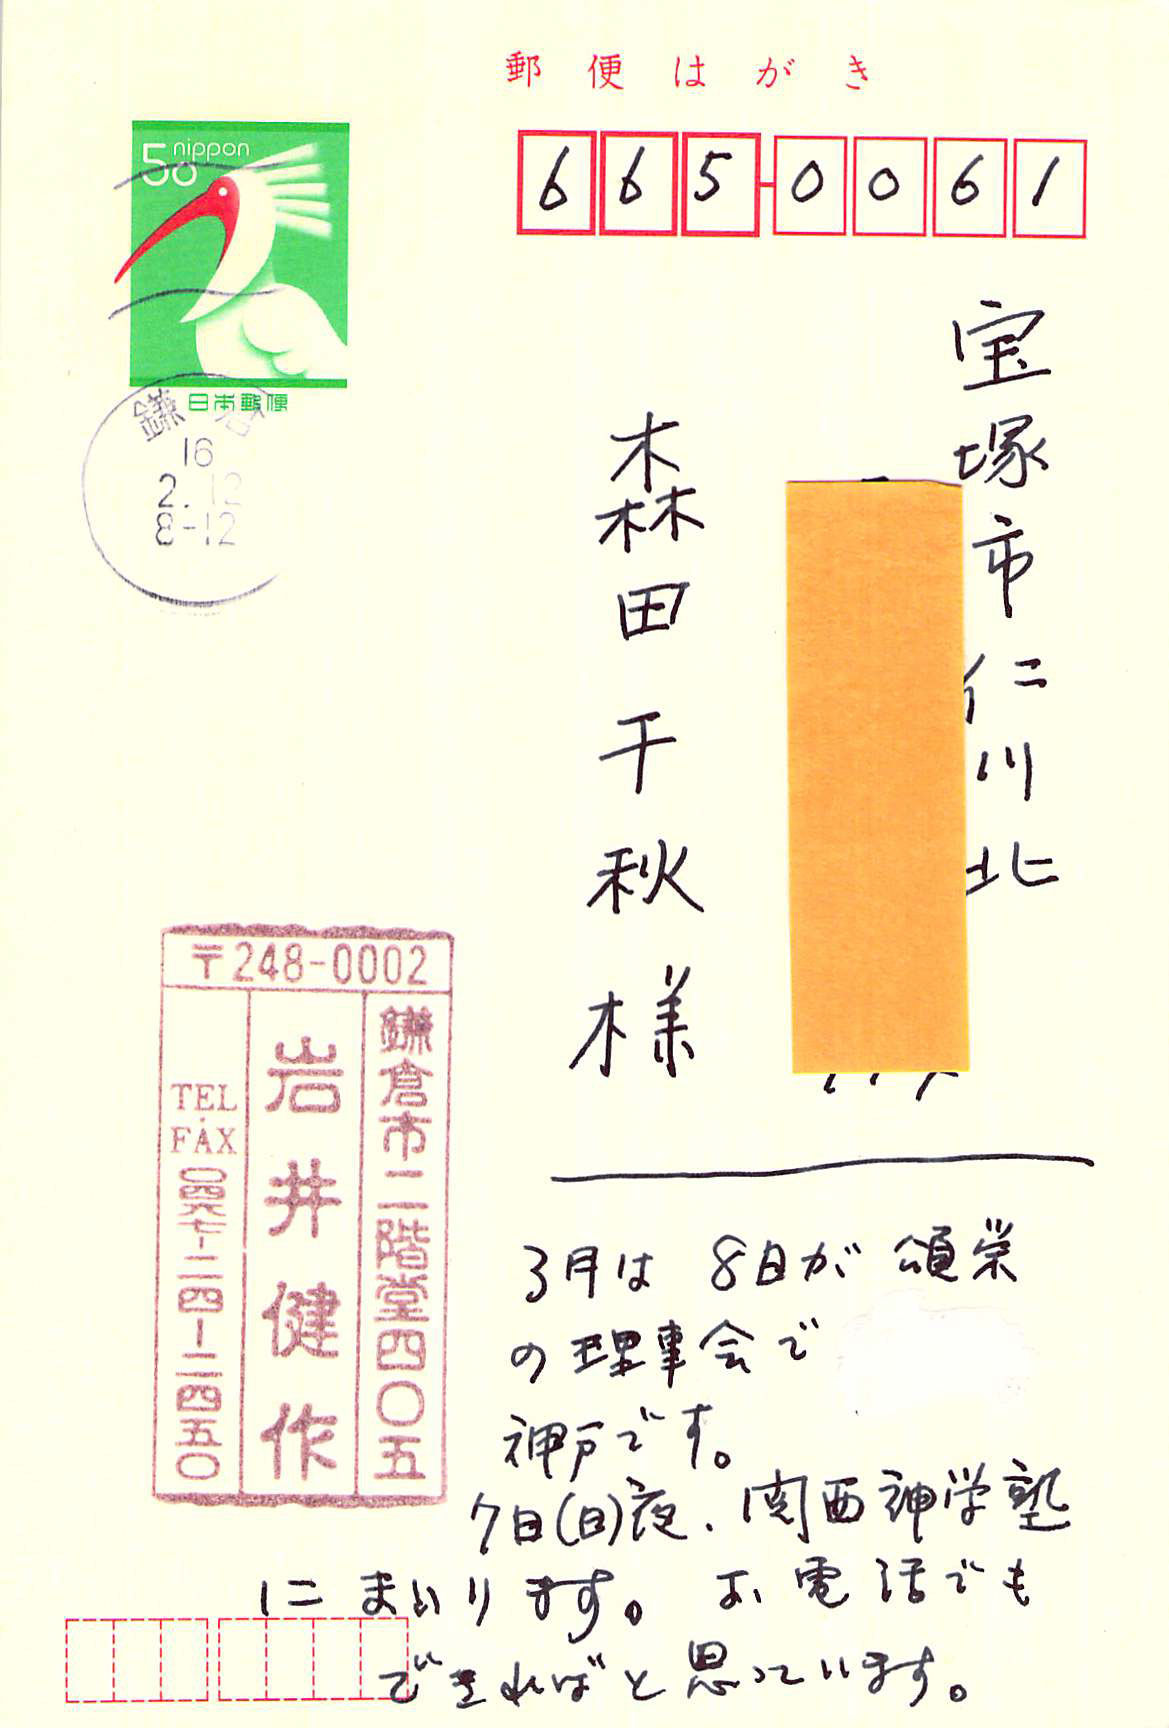 郵便はがき
50 nippon
日本郵便
鎌倉
16
2.12
8-12
665-0061
宝塚市仁川北
森田千秋様
〒248-0002
鎌倉市二階堂四〇五
岩井健作
TEL・FAX
〇四六七-二四-二四五〇
3月は 8日が 頌栄
の理事会で
神戸です。
7日(日)夜、関西神学塾
にまいります。お電話でも
できればと思っています。